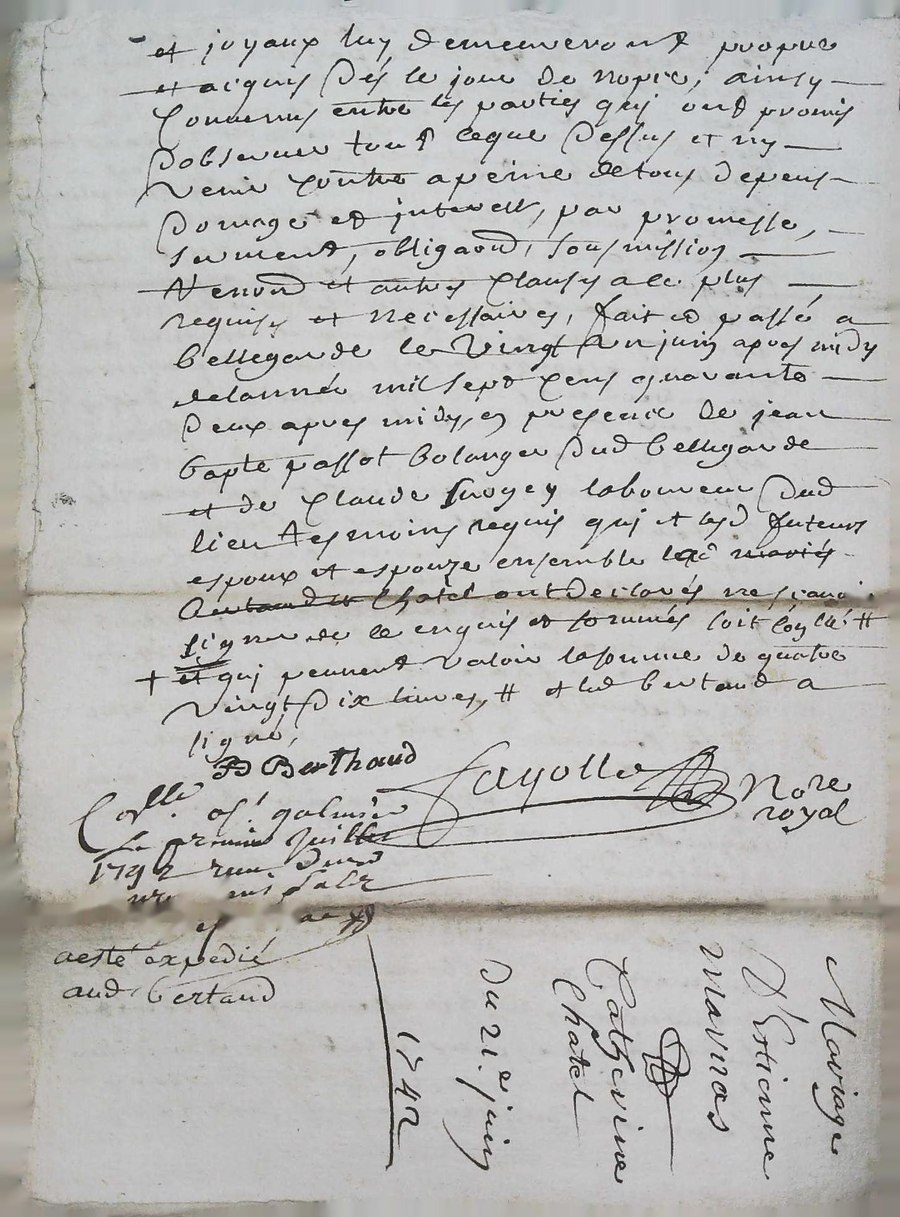 et joyaux luy demeureront propre
et acquis dés le jour de nopce, ainsy
Convenus entre les parties quj ont promis
d'observer tout ceque dessus et ny
venir contre apeine detous depens
domage et interest, par promesse,
serment, obligaond, sousmission
Renond et autres clauses a ce plus
requises et necessaires, fait et passé a
bellegarde le vingt un juin apres midy
delannée mil sept cens quarante
deux apres midy, en presence de jean
bapte passot bolanger dud bellegarde
et de Claude laboureur dud
lieu tesmoins requis quj et lesd futeurs
espoux et espouze ensemble mariés
Chatel ont declarés ne scavoir
signer de ce enquis et sommés soit Conlle #
+ et quj peuvent valoir lasomme de quatre
vingt dix livres, # et led bertaud a
signé,
B Berthaud
Fayolle Nore
royal
Conlle a st galmier
le premier Juillet
1742
aesté éxpedié
aud bertaud
Mariage
D'Estienne
mavras
&
Catherine
Chatel
du 21.e juin
1742